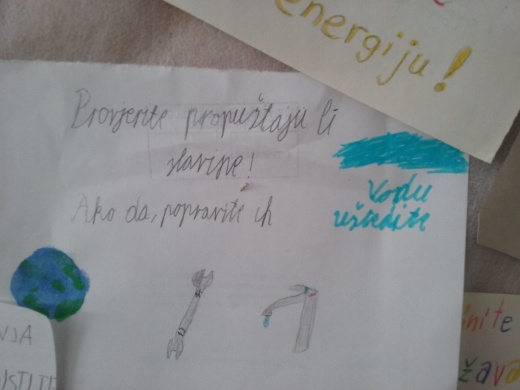 energiju!
Provjerite propuštaju li
slavine!
Ako da, popravite ih
Vodu
uštedite